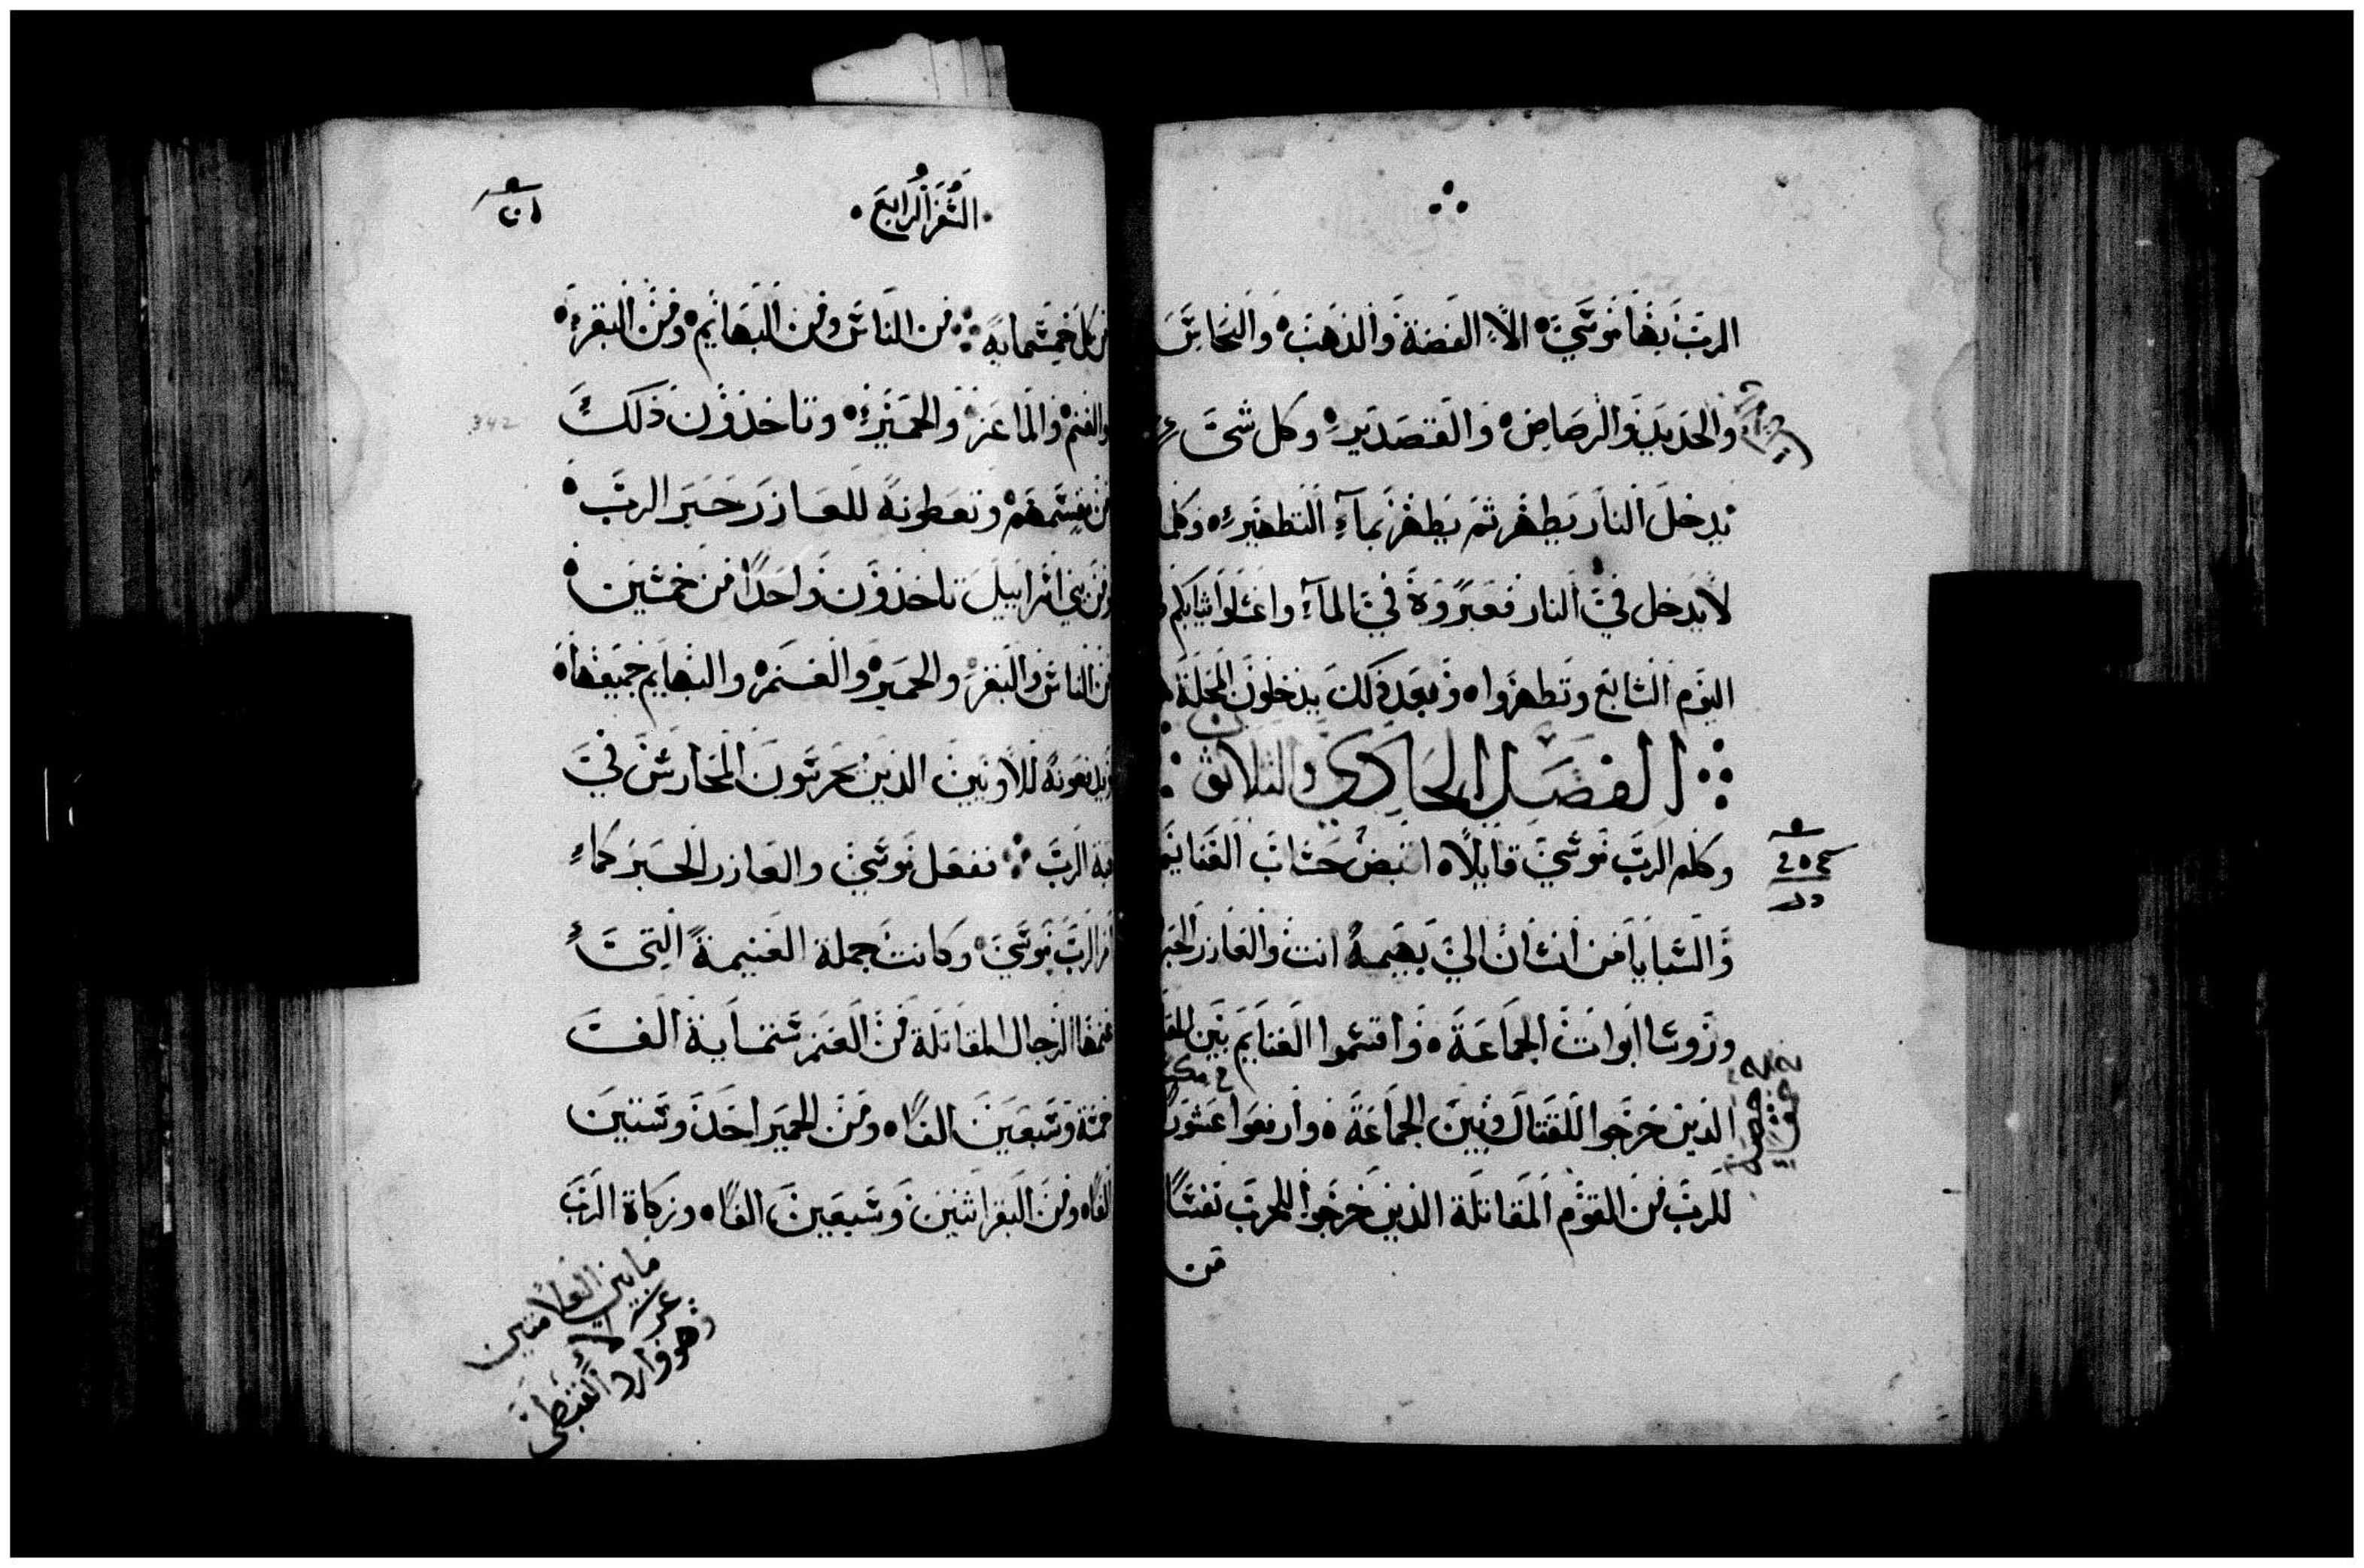 الرب بها موسي الا الفضة والذهب والنحاس
والحديد والرصاص والقصدير وكل شي
يدخل النار يطهر ثم يطهر بماء التطهير وكلما
لا يدخل في النار فعبروه في الماء واغسلوا ثيابكم
اليوم السابع وتطهروا وبعد ذلك يدخلون المحلة
الفصل الحادي والثلاثون
وكلم الرب موسي قايلا اقبض حساب الغنايم
والسبايا من انسان الي بهيمة انت والعازر الحبر
وروسا ابوات الجماعة واقتسموا الغنايم بين
الذين خرجوا للقتال وبين الجماعة وارفعوا عشور
للرب من القوم المقاتلة الذين خرجوا للحرب نفسا
من
السفر الرابع
من كل خمسماية من الناس ومن البهايم ومن البقر
والغنم والماعز والحمير وتاخذون ذلك
من قسمهم وتعطونه للعازر حبر الرب
ومن بني اسراييل تاخذون واحدا من خمسين
من الناس والبقر والحمير والغنم والبهايم جميعها
ويدفعونه للاويين الذين يحرسون المحارس في
قبة الرب ففعل موسي والعازر الحبر كما
امر الرب موسي وكانت جملة الغنيمة التي
غنمها الرجال المقاتلة من الغنم ستماية الف
خمسة وسبعين الفا ومن الحمير احد وستين
الفا ومن البقر اثنين وسبعين الفا وزكاة الرب
ما بين العلامتين
وهو وارد القبطي
342